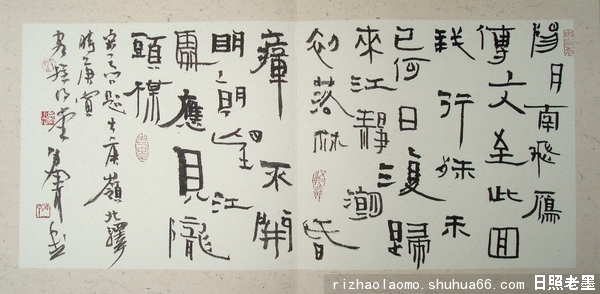 陽月南飛鴈
傳文至此回
我行殊未
已何日復歸
來江静潮
初落林昏
瘴不開
明朝望
處應見隴
頭楳
宋之问題大庾嶺北驛
時庚寅
rizhaolaomo.shuhua66.com
日照老墨